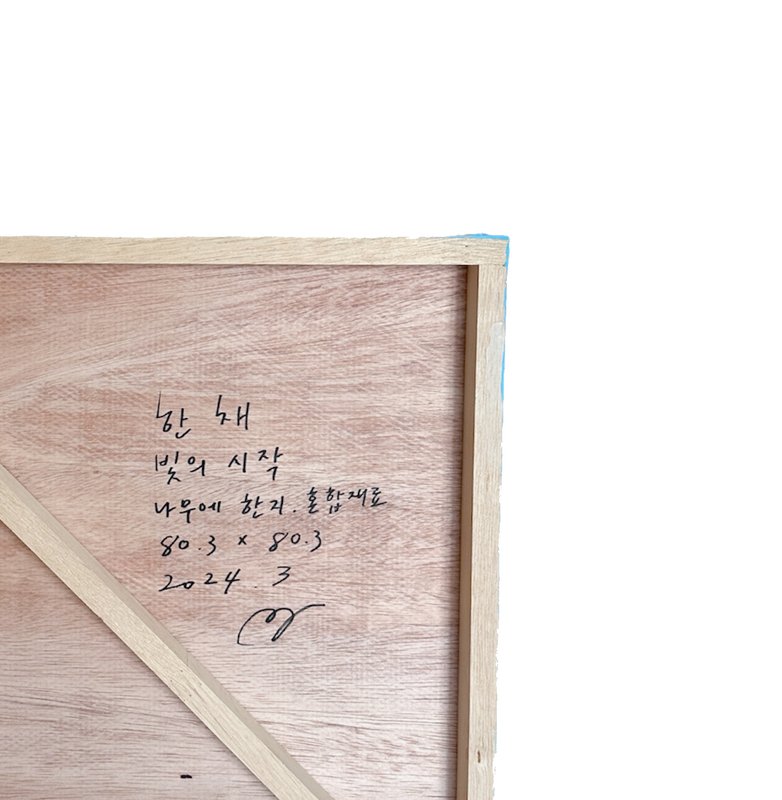 한 채
빛의 시작
나무에 한지. 혼합재료
80.3 x 80.3
2024. 3